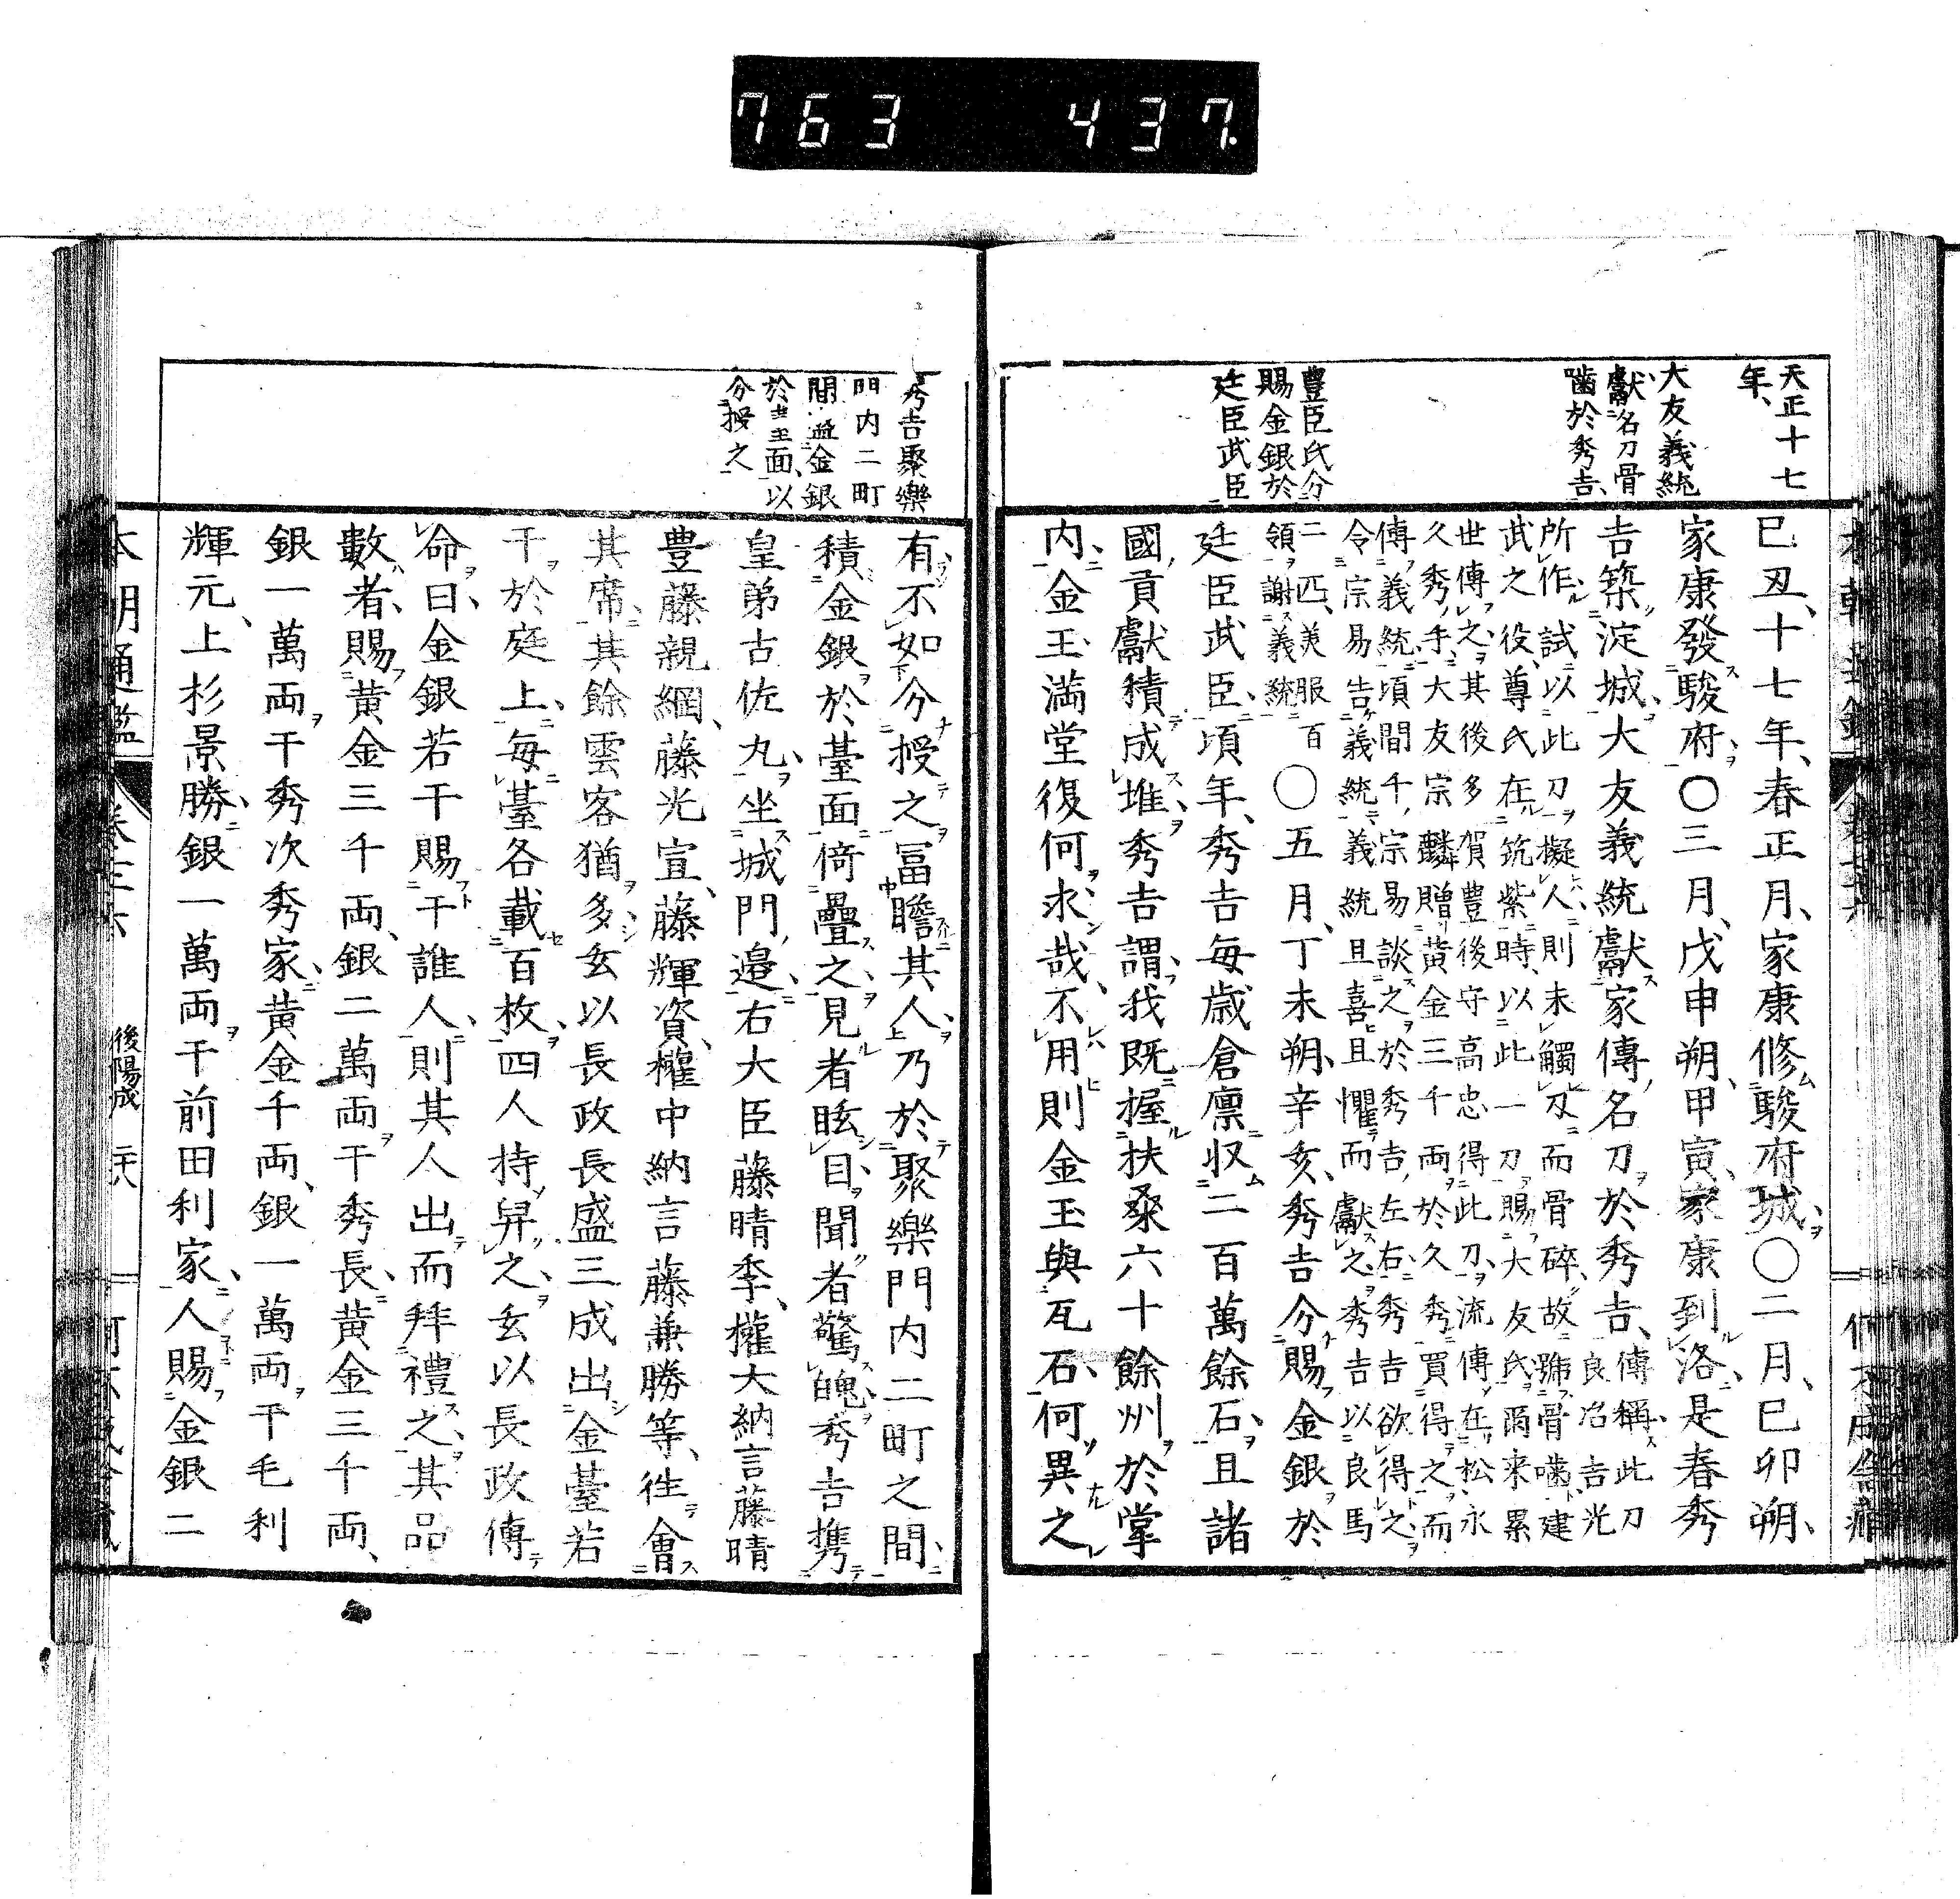 763 437.
天正十七
年、
大友義統
獻名刀骨
噛於秀吉、
豊臣氏分
賜金銀於
廷臣武臣
己丑、十七年、春正月、家康修駿府城、〇二月、己卯朔、
家康發駿府、〇三月、戊申朔、甲寅、家康到洛、是春秀
吉築淀城、大友義統獻家傳名刀於秀吉、傳稱、此刀
良冶吉光
所作、試以此刀擬人、則未觸刄而骨碎、故號骨噛、建
武之役、尊氏在筑紫時、以此一刀賜大友氏、爾来累
世傳之、其後多賀豊後守高忠得此刀、流傳在松永
久秀手、大友宗麟贈黄金三千両於久秀、買得之而
傳義統、頃間千宗易談之於秀吉、左右、秀吉欲得之、
令宗易告義統、義統且喜且懼而獻之、秀吉以良馬
二匹、美服百
領謝義統
〇五月、丁未朔、辛亥、秀吉分賜金銀於
廷臣武臣、頃年、秀吉毎歳倉廪収二百萬餘石、且諸
國貢獻積成堆、秀吉謂、我既握扶桑六十餘州於掌
内、金玉満堂復何求哉、不用則金玉與瓦石、何異之
秀吉聚樂
門内二町
間益金銀
於臺面、以
分授之
有、不如分授之冨贍其人、乃於聚樂門内二町之間、
積金銀於臺面、倚疊之、見者眩目、聞者驚魄、秀吉携
皇弟古佐丸、坐城門邉、右大臣藤晴季、權大納言藤晴
豊藤親綱、藤光宣、藤輝資、權中納言藤兼勝等、徃會
其席、其餘雲客猶多、玄以長政長盛三成出金臺若
干於庭上、毎臺各載百枚、四人持舁之、玄以長政傳
命曰、金銀若干賜干誰人、則其人出而拜禮之、其品
數者、賜黄金三千両、銀二萬両干秀長、黄金三千両、
銀一萬両干秀次秀家、黄金千両、銀一萬両干毛利
輝元、上杉景勝、銀一萬両干前田利家、人賜金銀二
本朝通鑑
後陽成